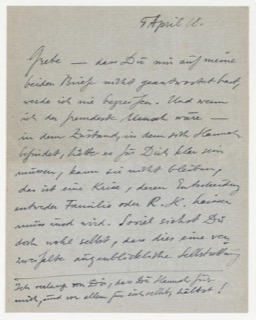 9 April 18.
Grete — dass Du mir auf meine
beiden Briefe nicht geantwortet hast,
werde ich nie begreifen. Und wenn
ich der fremdeste Mensch wäre —
in dem Zustand, in dem sich Hannah
befindet, hätte es für Dich klar sein
müssen, kann sie nicht bleiben,
das ist eine Krise, deren Entscheidung
entweder Familie oder R. K. heissen
muss und wird. Soviel siehst Du
doch wohl selbst, dass dies eine ver-
zweifelte augenblickliche
Ich verlange von Dir, dass Du Hannah für
mich, und vor allem für sich selbst hältst!